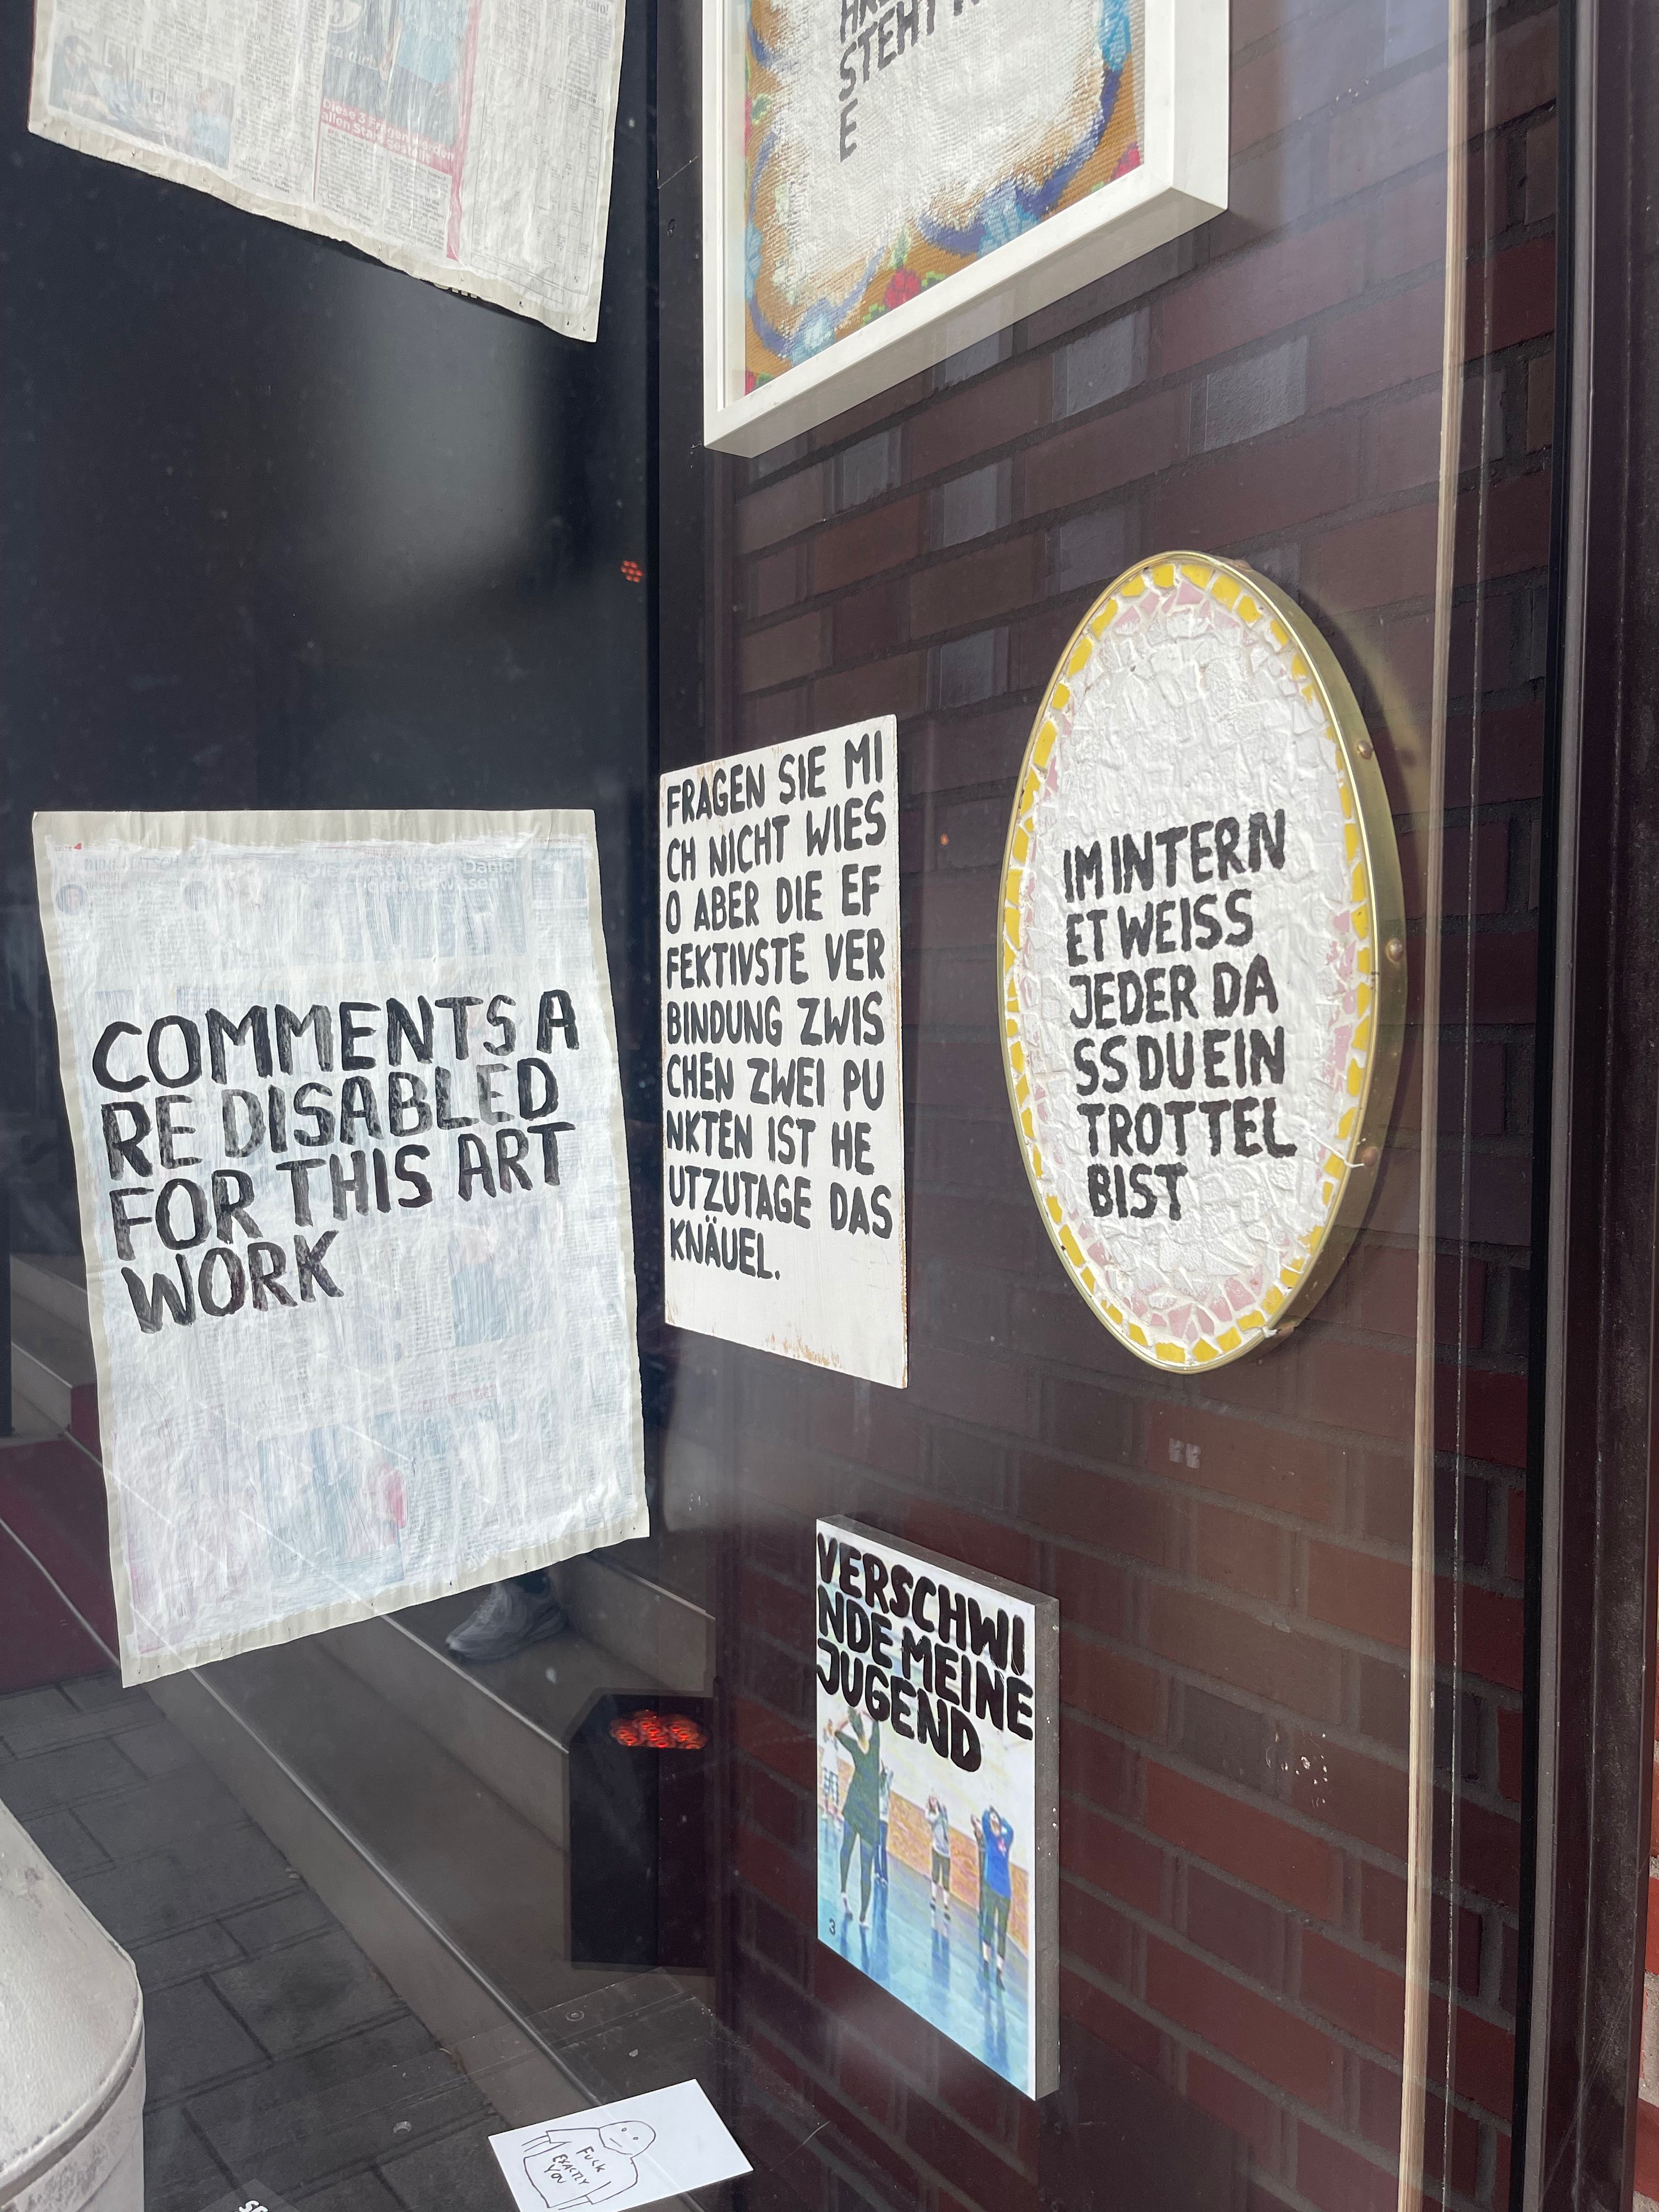 STEHT
E
Diese 3 Fragen werden
allen Stars gestellt
FRAGEN SIE MI
CH NICHT WIES
O ABER DIE EF
FEKTIVSTE VER
BINDUNG ZWIS
CHEN ZWEI PU
NKTEN IST HE
UTZUTAGE DAS
KNÄUEL.
IM INTERN
ET WEISS
JEDER DA
SS DU EIN
TROTTEL
BIST
COMMENTS A
RE DISABLED
FOR THIS ART
WORK
VERSCHWI
NDE MEINE
JUGEND
3
FUCK
EXACTLY
YOU